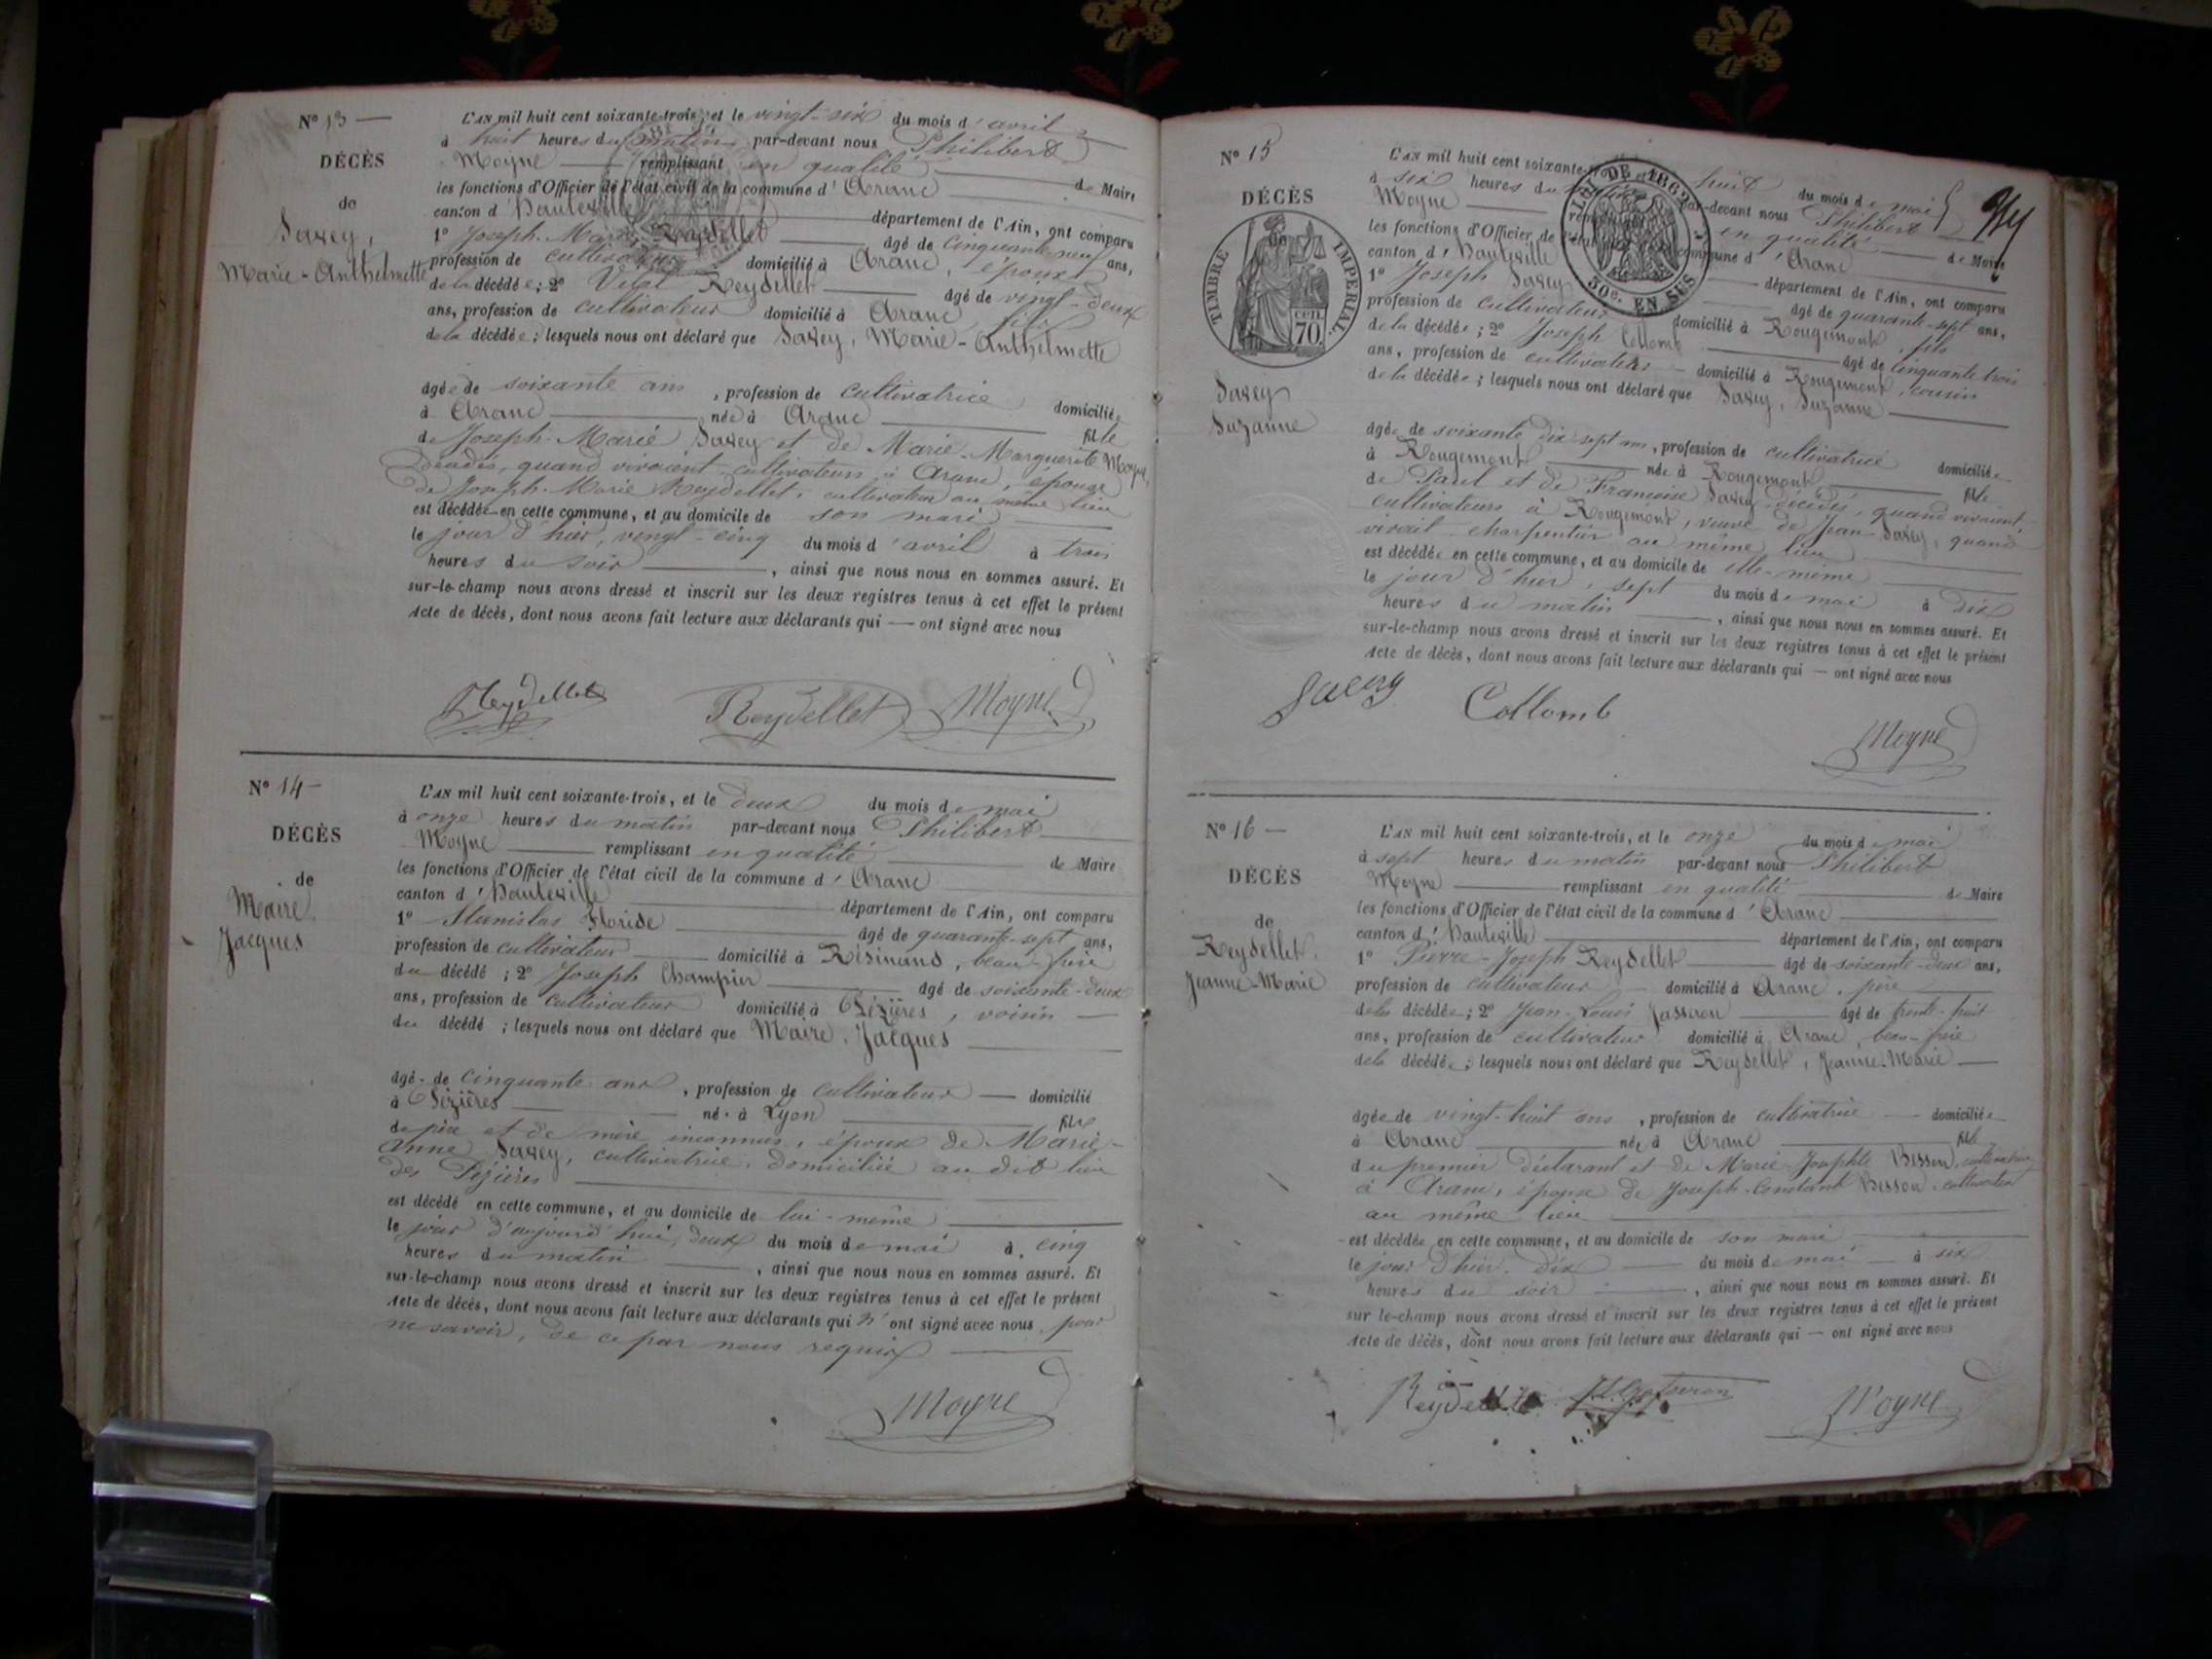 N° 13 —
DÉCÈS
de
Savey,
Marie-Anthelmette
L'AN mil huit cent soixante-trois, et le vingt-six du mois d'avril
à huit heures du matin par-devant nous Philibert
Moyne — remplissant en qualité — de Maire
les fonctions d'Officier de l'état civil de la commune d'Aranc
canton d'Hauteville — département de l'Ain, ont comparu
1° Joseph-Marie Reydellet — âgé de cinquante-neuf ans,
profession de cultivateur domicilié à Aranc, époux
de la décédée; 2° Vital Reydellet — âgé de vingt-deux
ans, profession de cultivateur domicilié à Aranc, fils
de la décédée; lesquels nous ont déclaré que Savey, Marie-Anthelmette
âgée de soixante ans, profession de cultivatrice domiciliée
à Aranc — née à Aranc — fille
de Joseph-Marie Savey et de Marie-Marguerite Moyne,
décédés, quand vivaient cultivateurs à Aranc, épouse
de Joseph-Marie Reydellet, cultivateur au même lieu
est décédée en cette commune, et au domicile de son mari —
le jour d'hier, vingt-cinq du mois d'avril à trois
heures du soir —, ainsi que nous nous en sommes assuré. Et
sur-le-champ nous avons dressé et inscrit sur les deux registres tenus à cet effet le présent
Acte de décès, dont nous avons fait lecture aux déclarants qui — ont signé avec nous
Reydellet Reydellet Moyne
N° 14 —
DÉCÈS
de
Maire
Jacques
L'AN mil huit cent soixante-trois, et le deux du mois de mai
à onze heures du matin par-devant nous Philibert —
Moyne — remplissant en qualité — de Maire
les fonctions d'Officier de l'état civil de la commune d'Aranc —
canton d'Hauteville — département de l'Ain, ont comparu
1° Stanislas Floride — âgé de quarante-sept ans,
profession de cultivateur — domicilié à Résinand, beau-frère
du décédé; 2° Joseph Champier — âgé de soixante-deux
ans, profession de cultivateur domicilié à Pézières, voisin —
du décédé; lesquels nous ont déclaré que Maire, Jacques —
âgé de cinquante ans, profession de cultivateur — domicilié
à Pézières — né à Lyon — fils
de père et de mère inconnus, époux de Marie-
Anne Savey, cultivatrice, domiciliée au dit lieu
des Pézières —
est décédé en cette commune, et au domicile de lui-même —
le jour d'aujourd'hui, deux du mois de mai à cinq
heures du matin —, ainsi que nous nous en sommes assuré. Et
sur-le-champ nous avons dressé et inscrit sur les deux registres tenus à cet effet le présent
Acte de décès, dont nous avons fait lecture aux déclarants qui n'ont signé avec nous, pour
ne savoir, de ce par nous requis —
Moyne
N° 15
DÉCÈS
de
TIMBRE IMPERIAL
70 cen.
Savey
Suzanne
LOI DE 1862
50c. EN SUS
L'AN mil huit cent soixante-trois, et le huit du mois de mai
à six heures du matin par-devant nous Philibert
Moyne — remplissant en qualité — de Maire
les fonctions d'Officier de l'état civil de la commune d'Aranc
canton d'Hauteville — département de l'Ain, ont comparu
1° Joseph Savey — âgé de quarante-sept ans,
profession de cultivateur domicilié à Rougemont, fils
de la décédée; 2° Joseph Collomb — âgé de cinquante-trois
ans, profession de cultivateur — domicilié à Rougemont, cousin
de la décédée; lesquels nous ont déclaré que Savey, Suzanne —
âgée de soixante dix-sept ans, profession de cultivatrice domiciliée
à Rougemont — née à Rougemont — fille
de Paul et de Françoise Savey, décédés, quand vivaient,
cultivateurs à Rougemont, veuve de Jean Savey, quand
vivait charpentier au même lieu
est décédée en cette commune, et au domicile de elle-même —
le jour d'hier, sept du mois de mai à dix
heures du matin —, ainsi que nous nous en sommes assuré. Et
sur-le-champ nous avons dressé et inscrit sur les deux registres tenus à cet effet le présent
Acte de décès, dont nous avons fait lecture aux déclarants qui — ont signé avec nous
Savey Collomb
Moyne
N° 16 —
DÉCÈS
de
Reydellet,
Jeanne-Marie
L'AN mil huit cent soixante-trois, et le onze du mois de mai
à sept heures du matin par-devant nous Philibert
Moyne — remplissant en qualité — de Maire
les fonctions d'Officier de l'état civil de la commune d'Aranc —
canton d'Hauteville — département de l'Ain, ont comparu
1° Pierre-Joseph Reydellet — âgé de soixante-deux ans,
profession de cultivateur — domicilié à Aranc, père —
de la décédée; 2° Jean-Louis — âgé de trente-huit
ans, profession de cultivateur domicilié à Aranc, beau-frère
de la décédée; lesquels nous ont déclaré que Reydellet, Jeanne-Marie —
âgée de vingt-huit ans, profession de cultivatrice — domiciliée
à Aranc — née à Aranc — fille
du premier déclarant et de Marie-Josephte Besson, cultivateurs
à Aranc, épouse de Joseph-Constant Besson, cultivateur
au même lieu —
est décédée en cette commune, et au domicile de son mari —
le jour d'hier, dix — du mois de mai — à six
heures du soir —, ainsi que nous nous en sommes assuré. Et
sur-le-champ nous avons dressé et inscrit sur les deux registres tenus à cet effet le présent
Acte de décès, dont nous avons fait lecture aux déclarants qui — ont signé avec nous
Reydellet Moyne